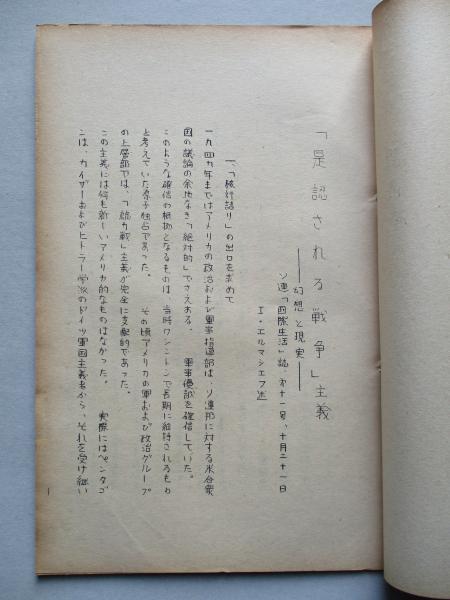 「是認される戦争」主義
――幻想と現実――
ソ連「国際生活」誌、第十一号、十月二十一日
I・エルマシェフ述
一、「核行詰り」の出口を求めて
一九四九年まではアメリカの政治および軍事指導部は、ソ連邦に対する米合衆
国の議論の余地なき「絶対的」でさえある、軍事優部を確信していた。
このような確信の根拠となるものは、当時ワシントンで長期に維持されるもの
と考えていた原子独占であった。その頃アメリカの軍および政治グループ
の上層部では、「総力戦」主義が完全に支配的であった。
この主義には何も新しいアメリカ的なものはなかった。実際にはペンタゴ
ンは、カイザーおよびヒトラー学派のドイツ軍国主義者から、それを受け継い
1